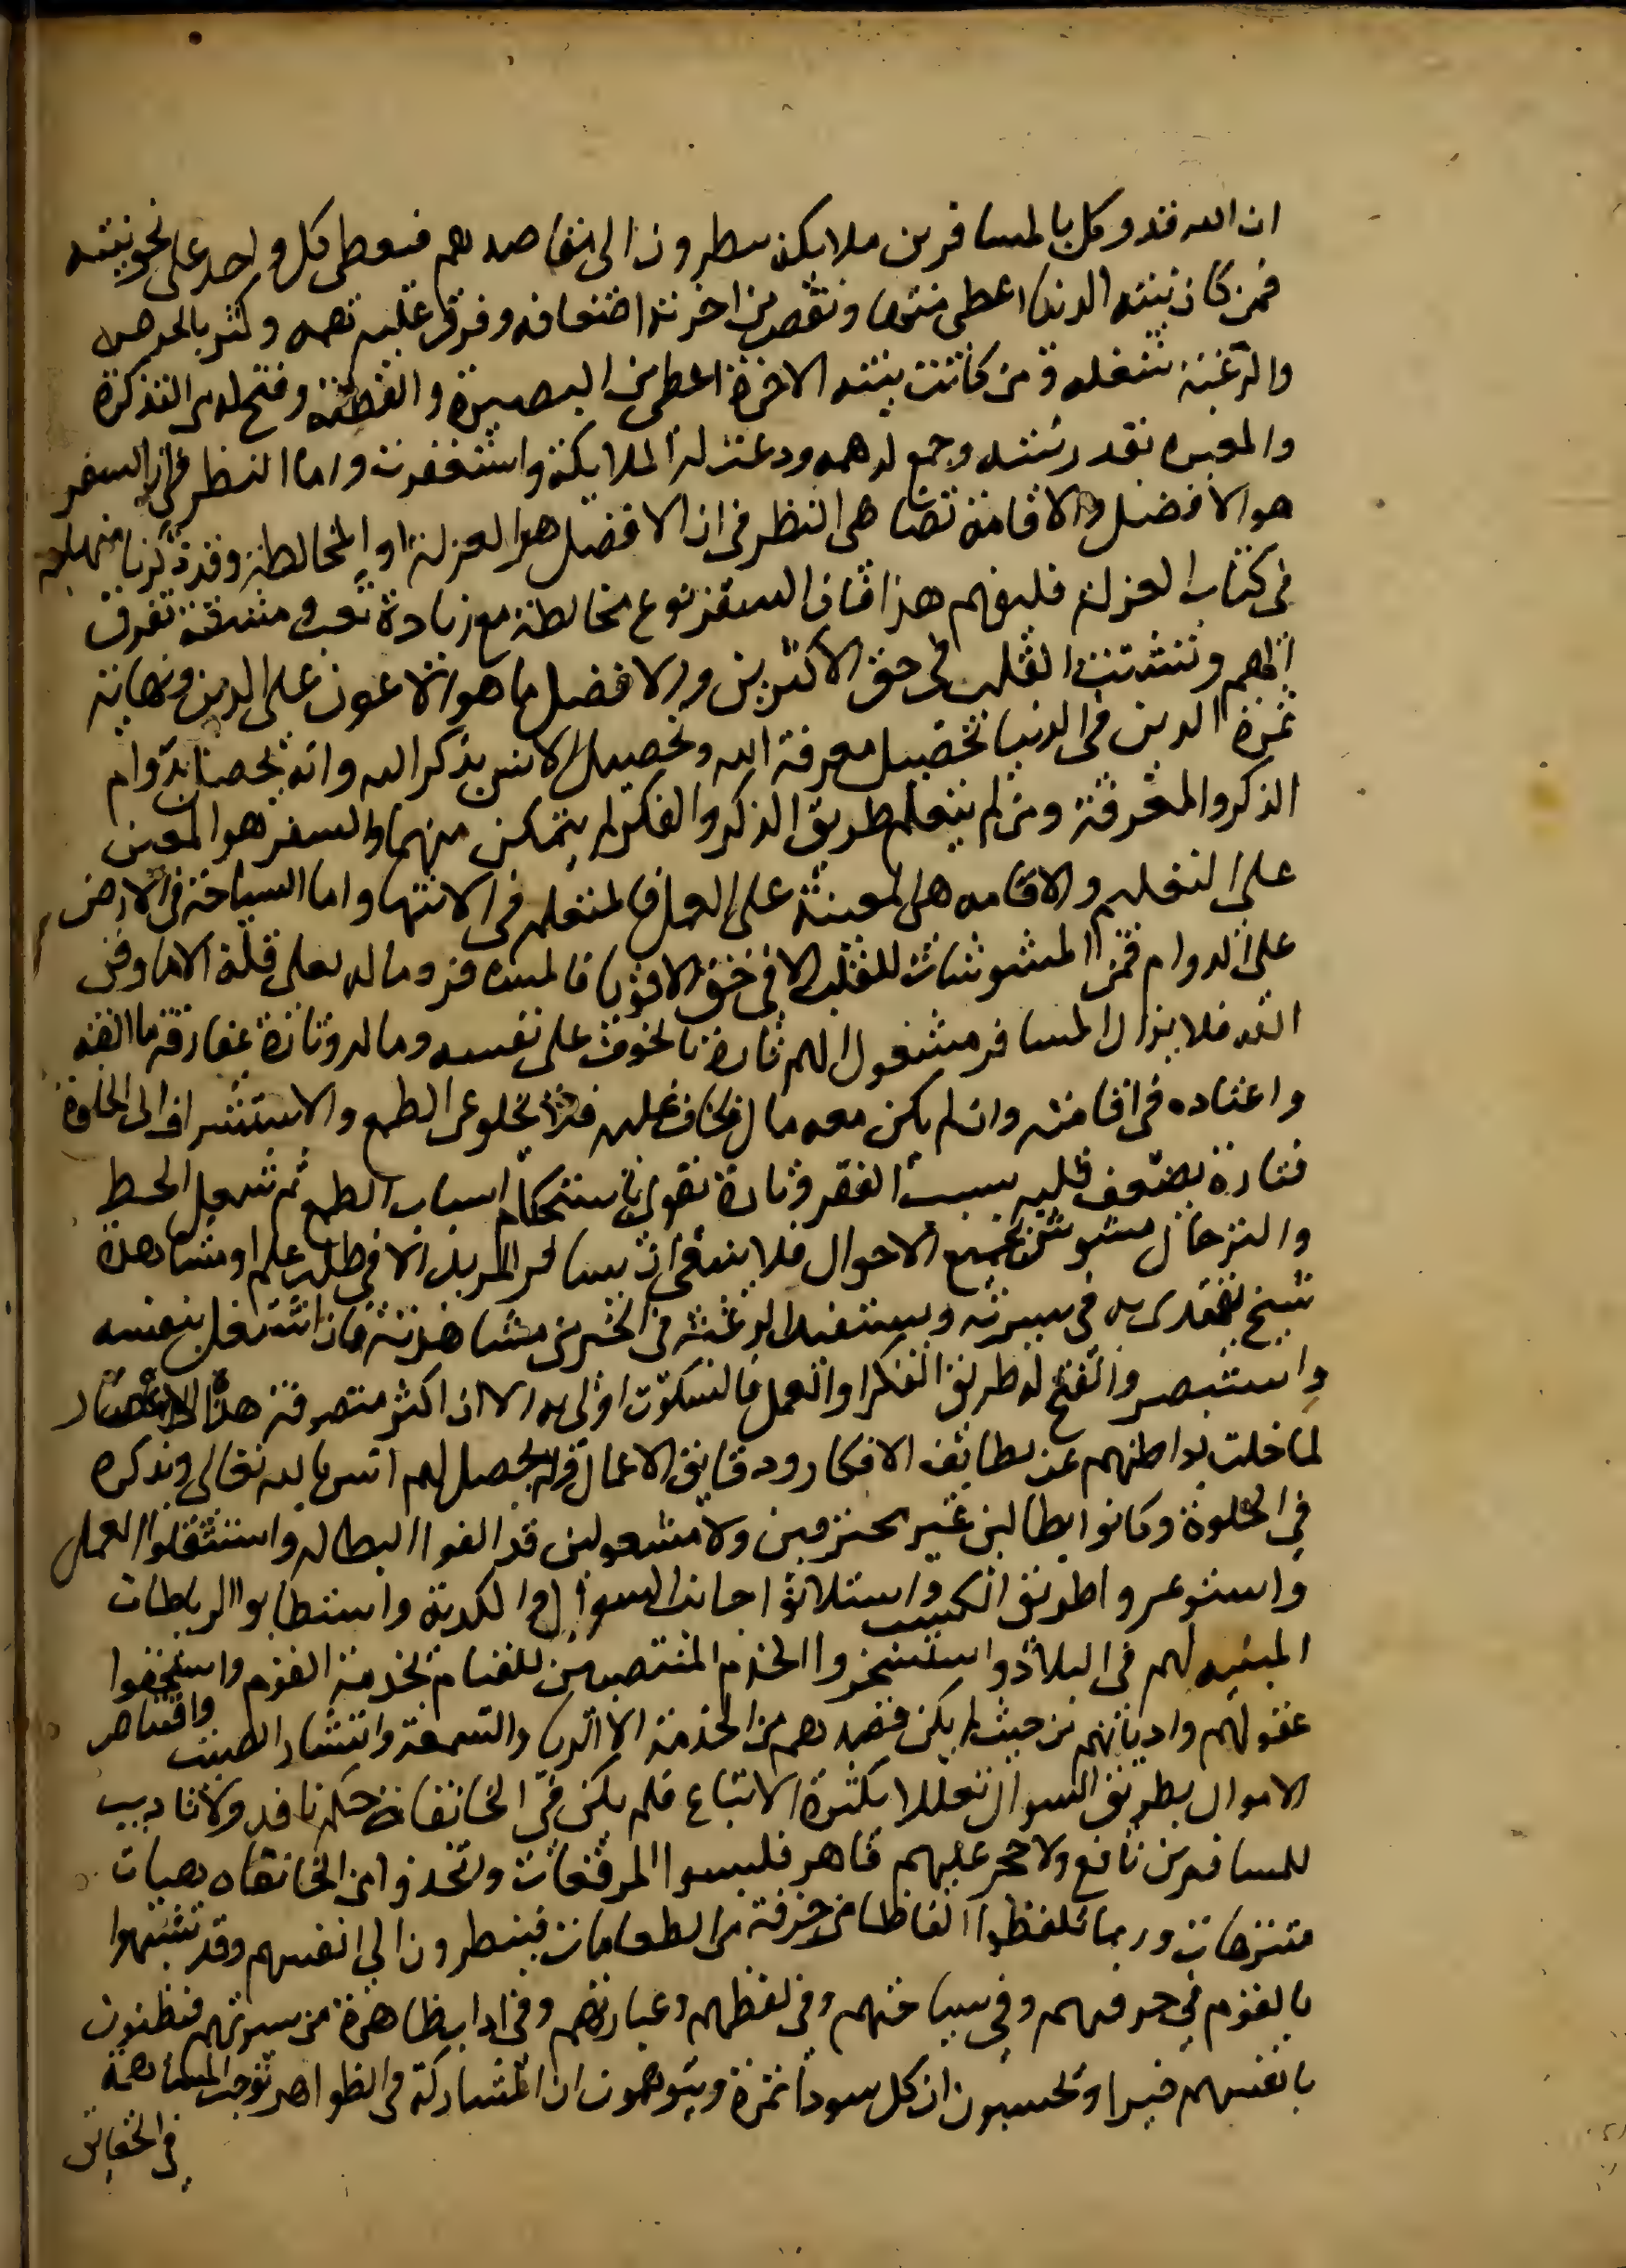 ان الله قد وكل بالمسافرين ملايكة ينظرون الى مقاصدهم فيعطى كل واحد على نحو نيته
فمن كان نيته الدنيا اعطى منها ونقص من اخرته اضعافه وفرق عليه همه وكثر بالحرص
والرغبة شغله ومن كانت نيته الاخرة اعطى من البصيرة والفطنة وفتح له من التذكرة
والعبره بقدر نيته وجمع له همه ودعت له الملايكة واستغفرت واما النظر فى ان السفر
هو الافضل والاقامة تضاهى النظر فى ان الافضل هو العزلة او المخالطة وقد ذكرنا منهاجه
فى كتاب العزلة فليفهم هذا فان السفر نوع مخالطة مع زيادة تعب ومشقة تفرق
الهم وتشتت القلب فى حق الاكثرين والافضل ما هو الاعون على الدين ونهاية
ثمرة الدين فى الدنيا تحصيل معرفة الله وتحصيل الانس بذكر الله وانه يحصل بدوام
الذكر والمعرفة ومن لم يتعلم طريق الذكر والفكر لم يتمكن منهما والسفر هو المعين
على التعلم والاقامه هى المعينة على العمل فالمتعلم فى الانتها واما السياحة فى الارض
على الدوام فمن المشوشات للقلب الا فى حق الاقويا فالمسافر وماله لعلى قلة الاما وقى
الله فلا يزال المسافر مشغول الهم تارة بالخوف على نفسه وماله وتارة بمفارقة ما الفه
واعتاده فى اقامته وان لم يكن معه مال يخاف عليه فلا يخلو عن الطمع والاستشراف الى الخلق
فتارة يضعف قلبه بسبب الفقر وتارة يقوى باستحكام اسباب الطمع ثم شغل الحط
والترحال مشوش لجميع الاحوال فلا ينبغى ان يسافر المريد الا فى طلب علم او مشاهدة
شيخ يقتدى به فى سيرته ويستفيد الرغبة فى الخير من مشاهدته فان اشتغل بنفسه
واستبصر وانفتح له طريق الفكر او العمل فالسكون اولى به الا ان اكثر متصوفة هذا الاعصار
لما خلت بواطنهم عن لطائف الافكار ودقايق الاعمال ولم يحصل لهم انس بالله تعالى وبذكره
فى الخلوة وكانوا بطالين غير محترفين ولا مشغولين قد الفوا البطاله واستثقلوا العمل
واستوعروا طريق الكسب واستلانوا جانب السوال والكدية واستطابوا الرباطات
المبنيه لهم فى البلاد واستسخروا الخدم المنتصبين للقيام بخدمة القوم واستخفوا
عقولهم واديانهم من حيث لم يكن قصدهم من الخدمة الا الريا والسمعة وانتشار الصيت واقتناص
الاموال بطريق السوال تعللا بكثرة الاتباع فلم يكن فى الخانقات حكم نافد ولا تاديب
للمسافرين نافع ولا حجر عليهم قاهر فلبسوا المرقعات واتخذوا من الخانقاه بهيات
متنزهات وربما تلفظوا الفاظا مزخرفة من الطامات فينظرون الى انفسهم وقد تشبهوا
بالقوم فى خرقهم وفى سياحتهم وفى لفظهم وعبارتهم وفى اداب ظاهرة من سيرتهم فيظنون
بانفسهم خيرا ويحسبون ان كل سودا تمرة ويتوهمون ان المشاركة فى الظواهر توجب المساهمة
فى الحقايق